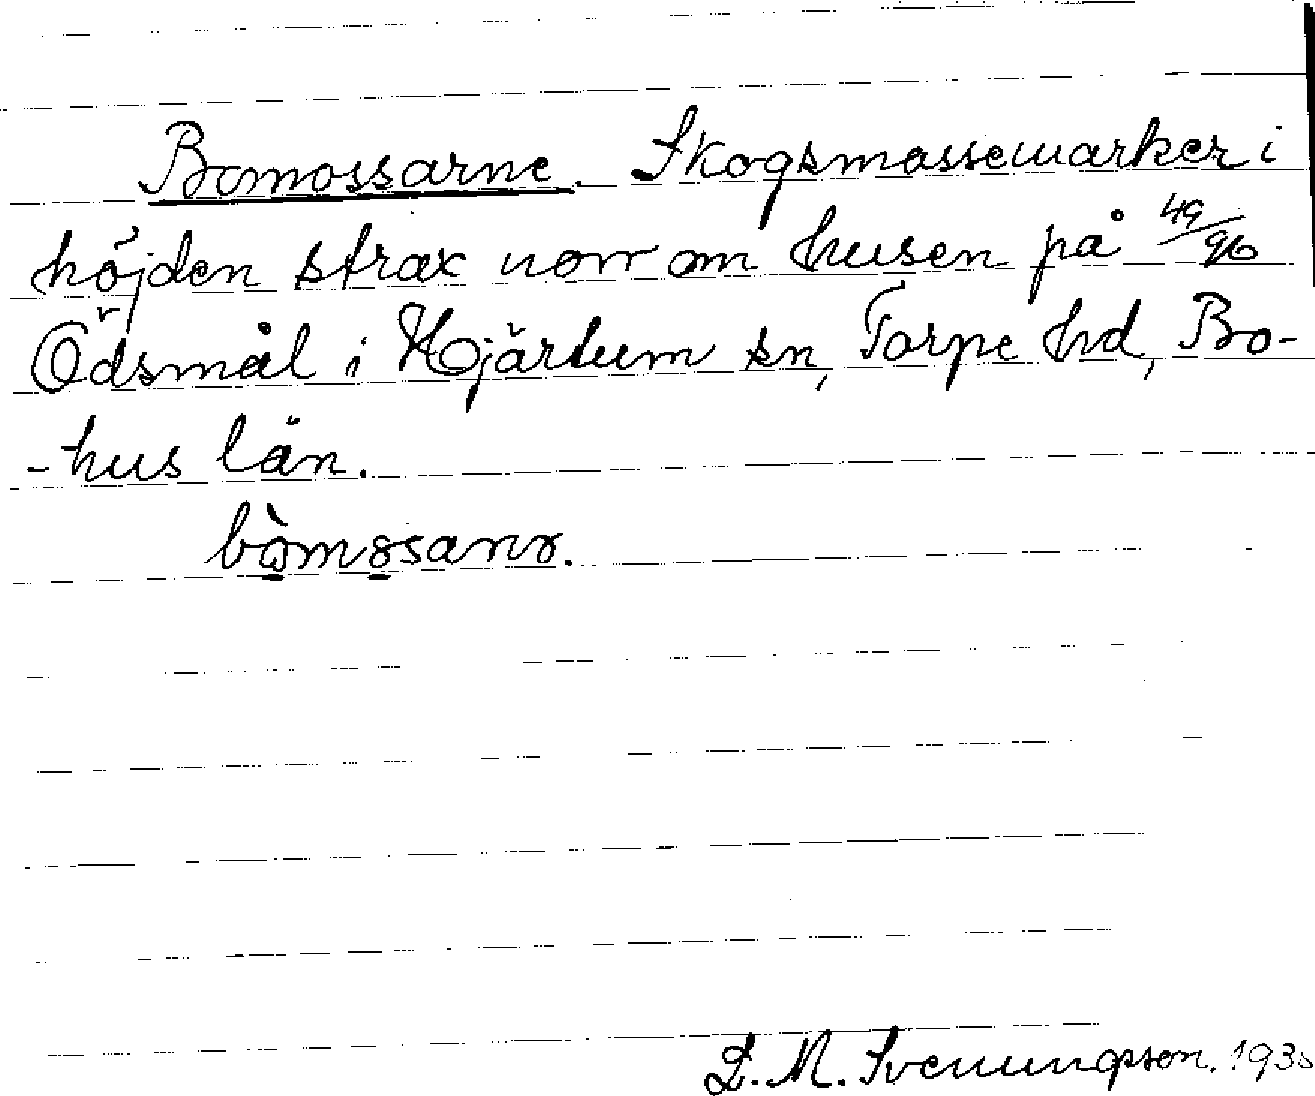 Bomossarne. Skogsmossemarker i
höjden strax norr om husen på 49/96
Ödsmål i Hjärtum sn, Torpe hd, Bo-
-hus län.
bòmossanɤ.
L. M. Svenungson. 193